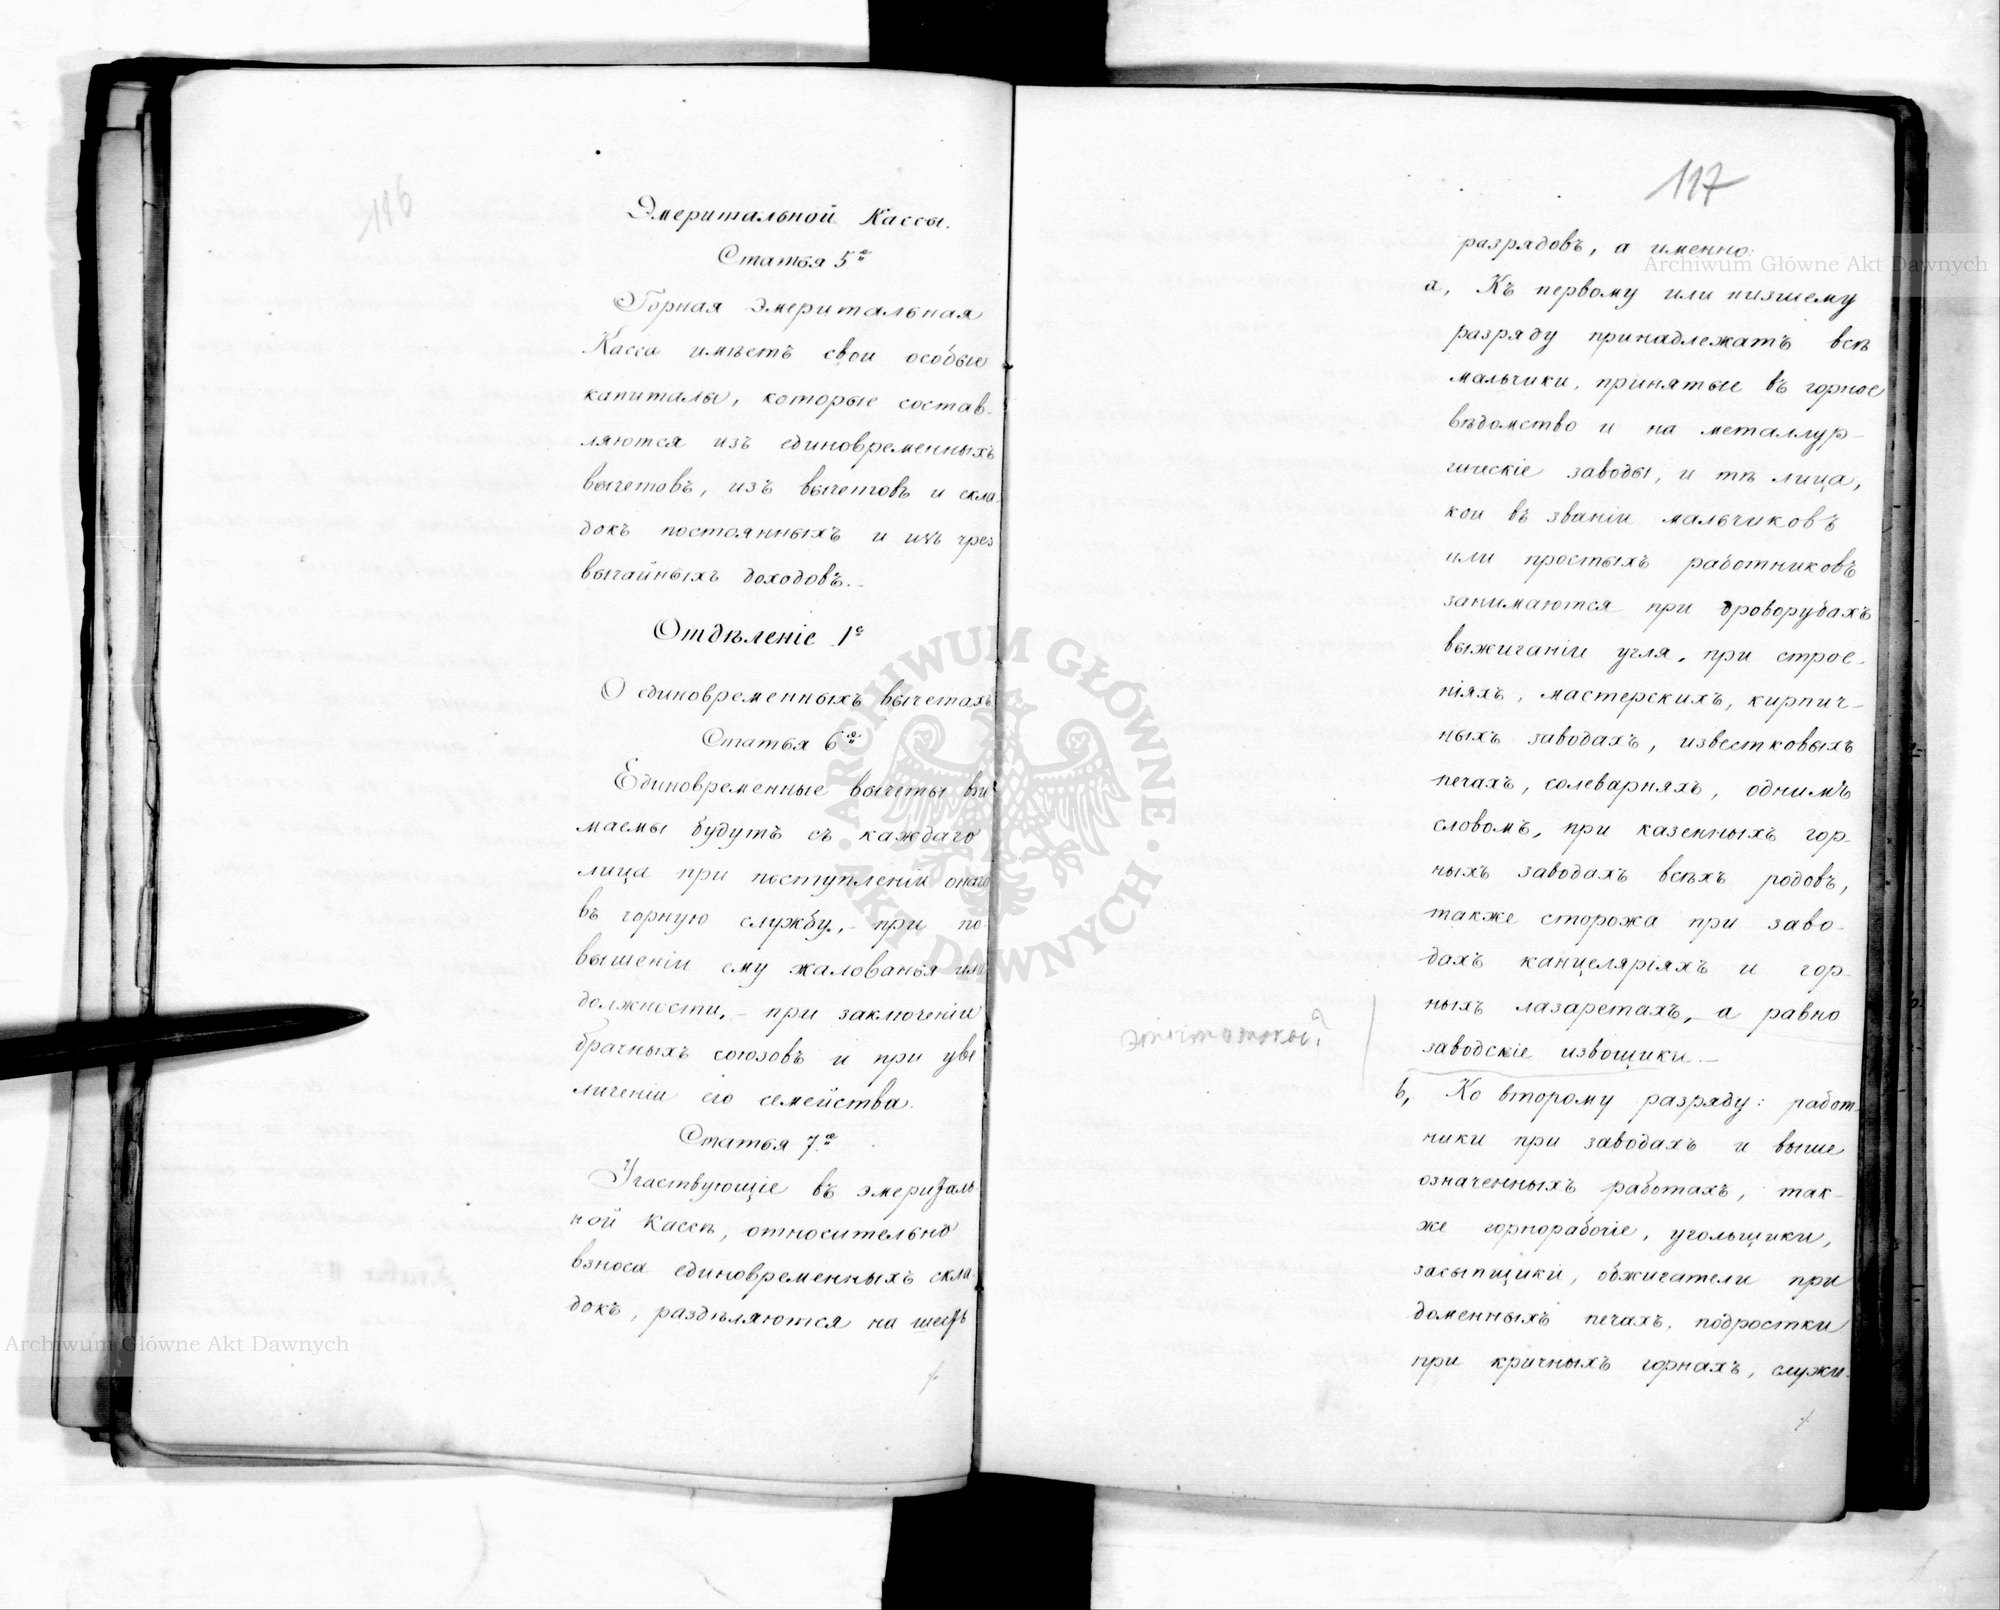 Эмеритальной Кассы.
Статья 5я
Горная Эмеритальная
Касса имѣетъ свои особые
капиталы, которые состав-
ляются изъ единовременныхъ
вычетовъ, изъ вычетовъ и скла-
докъ постоянныхъ и изъ чрез-
вычайныхъ доходовъ.
Отдѣленіе 1е
О единовременныхъ вычетахъ
Статья 6я
Единовременные вычеты взи-
маемы будутъ съ каждаго
лица при поступленіи онаго
въ горную службу, - при по-
вышеніи ему жалованья или
должности, - при заключеніи
брачныхъ союзовъ и при уве-
личеніи его семейства.
Статья 7я
Участвующіе въ эмериталь-
ной Кассѣ, относительно
взноса единовременныхъ скла-
докъ, раздѣляются на шесть
116
117
разрядовъ, а именно:
а, Къ первому или низшему
разряду принадлежатъ всѣ
мальчики, принятые въ горное
вѣдомство и на металлур-
гическіе заводы, и тѣ лица,
кои въ званіи мальчиковъ
или простыхъ работниковъ
занимаются при дроворубахъ
выжиганіи угля, при строе-
ніяхъ, мастерскихъ, кирпич-
ныхъ заводахъ, известковыхъ
печахъ, солеварняхъ, однимъ
словомъ, при казенныхъ гор-
ныхъ заводахъ всѣхъ родовъ,
также сторожа при заво-
дахъ канцеляріяхъ и гор-
ныхъ лазаретахъ, а равно
заводскіе извощики. -
b, Ко второму разряду: работ-
ники при заводахъ и выше
означенныхъ работахъ, так-
же горнорабочіе, угольщики,
засыпщики, обжигатели при
доменныхъ печахъ, подростки
при кричныхъ горнахъ, служи-
Archiwum Główne Akt Dawnych
Archiwum Główne Akt Dawnych
ARCHIWUM GŁÓWNE AKT DAWNYCH